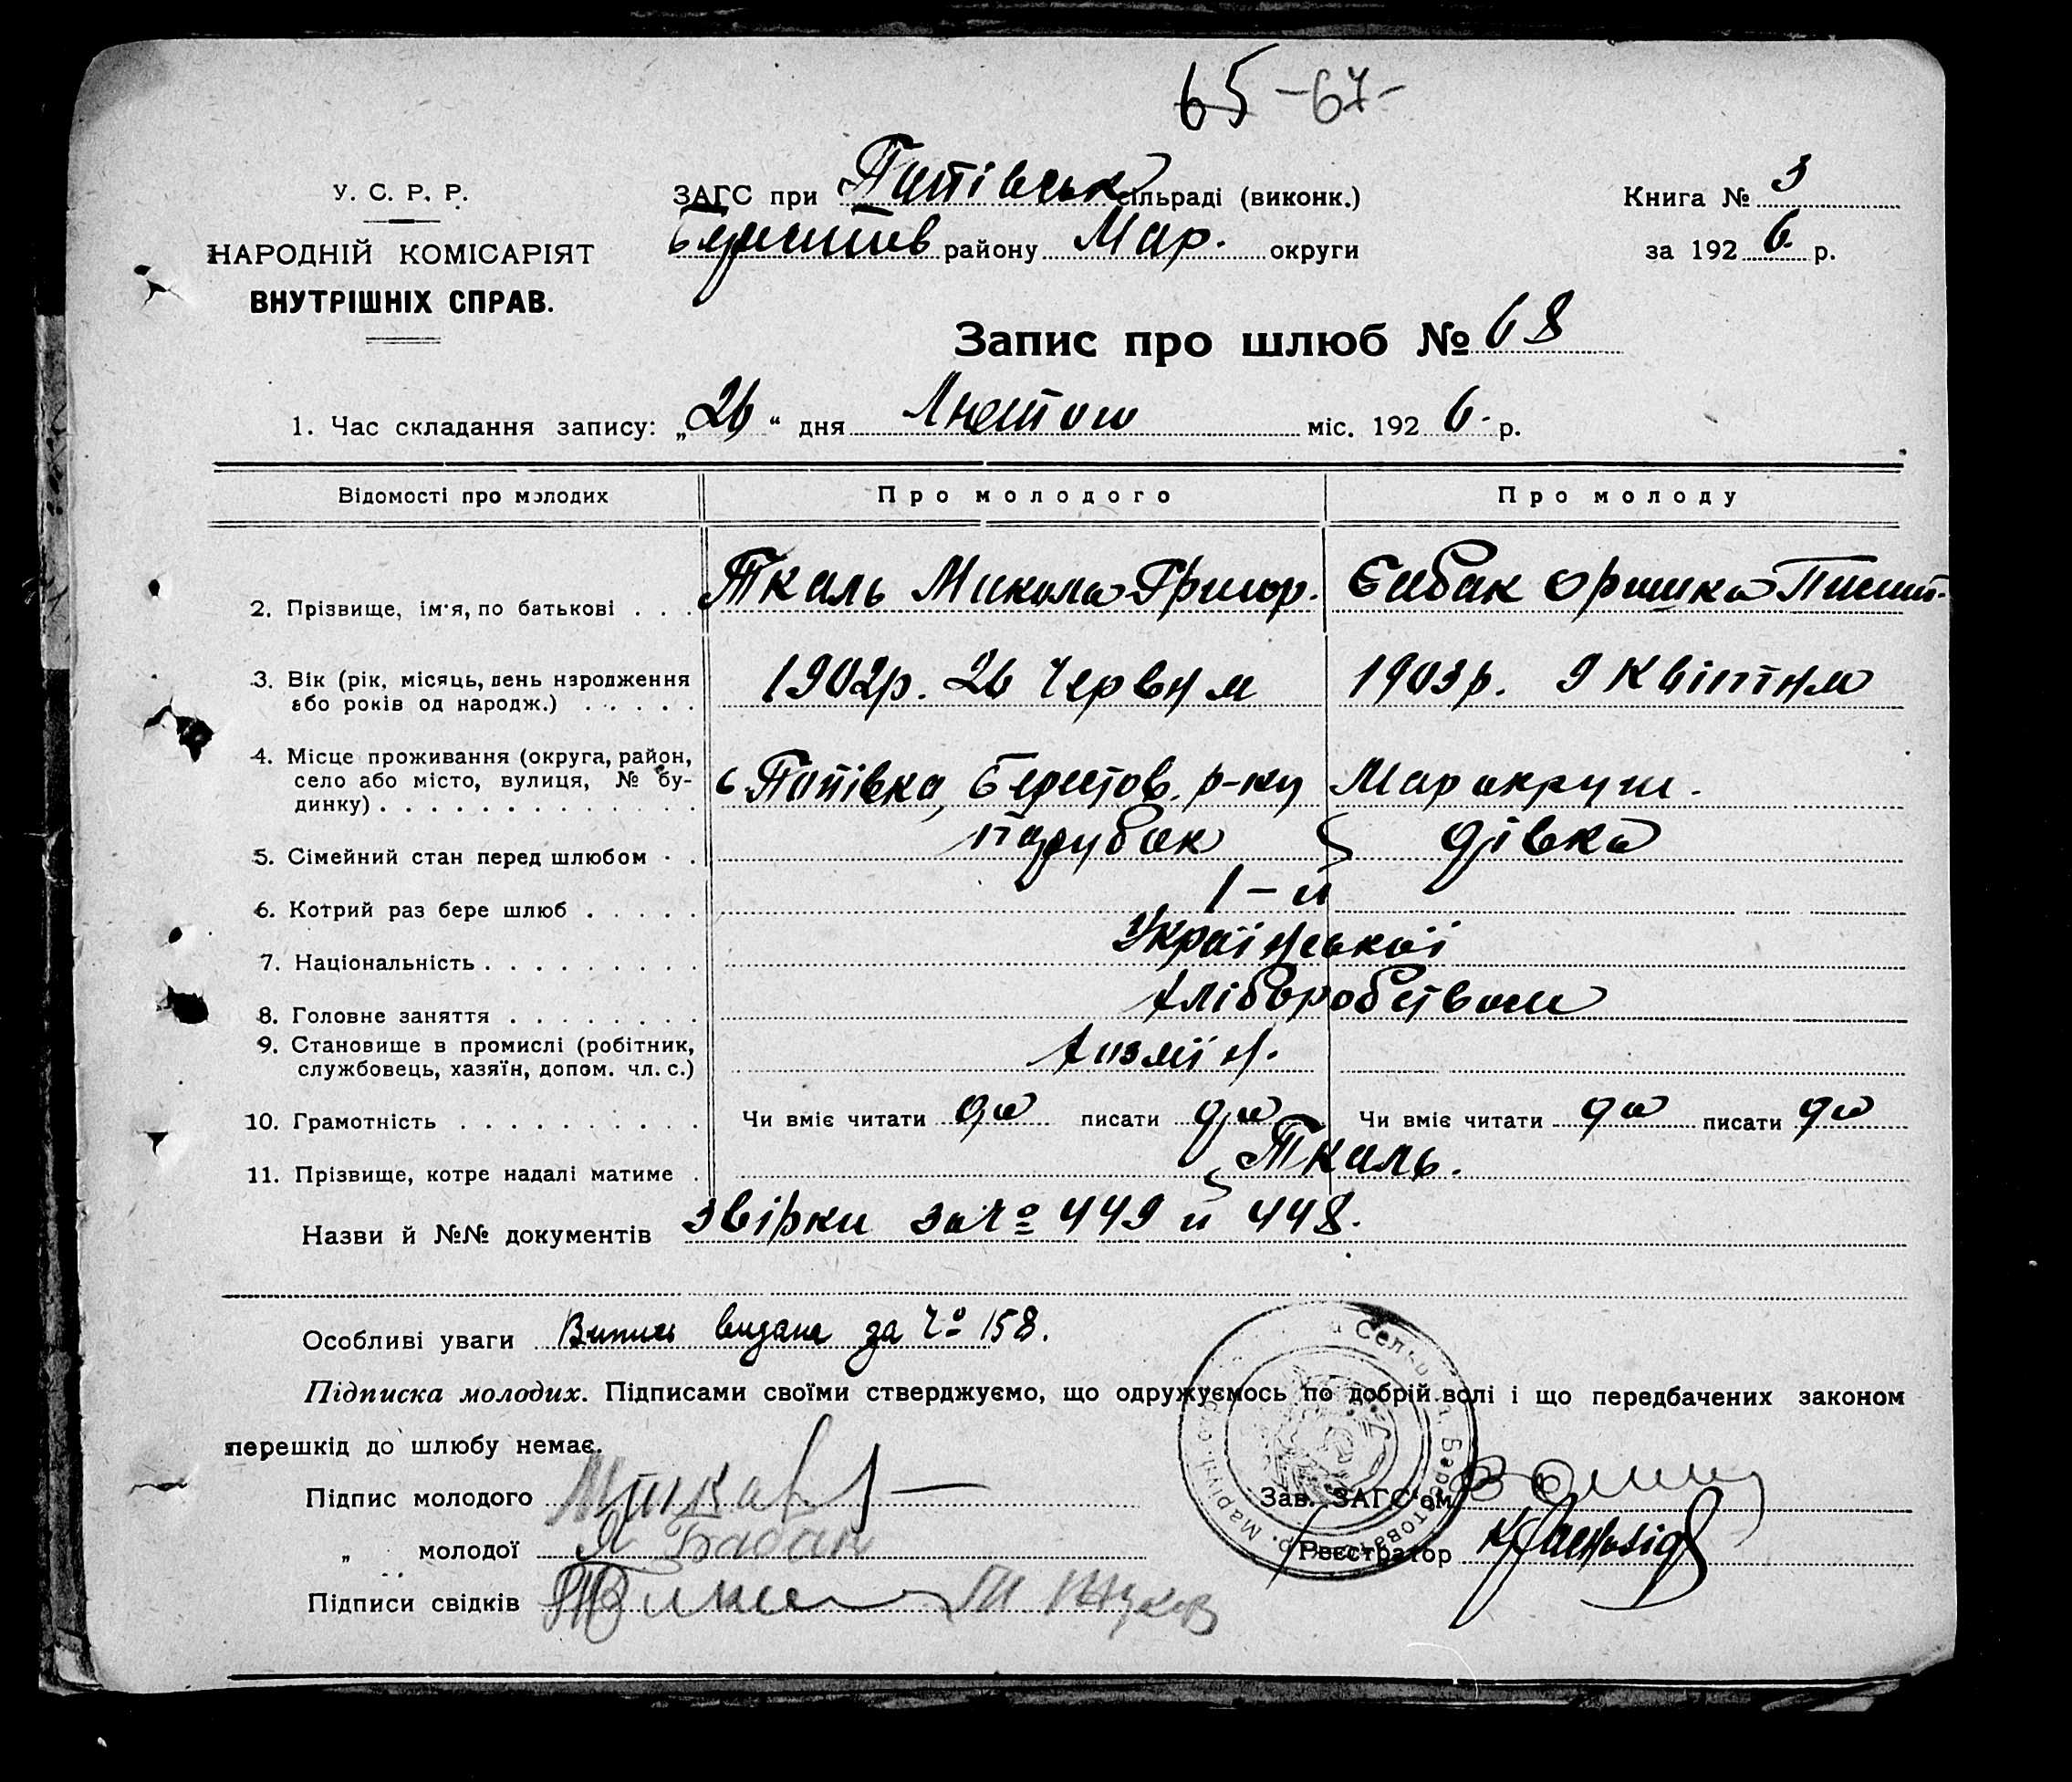 65 -67-
У. С. Р. Р.
НАРОДНІЙ КОМІСАРІЯТ
ВНУТРІШНІХ СПРАВ.
ЗАГС при Попівськ сільраді (виконк.)
Берестов району Мар. округи
Книга № 3
за 1926 р.
Запис про шлюб № 68
1. Час складання запису: „26“ дня Лютого міс. 1926 р.
Відомості про молодих Про молодого Про молоду
2. Прізвище, ім'я, по батькові . . . Ткаль Микола Григор. Бабак Оришка
3. Вік (рік, місяць, день народження 1902р. 26 Червня 1903р. 9 Квітня
або років од народж.) . . . . .
4. Місце проживання (округа, район,
село або місто, вулиця, № бу- с Попівка, Берестов. р-ну Мар округи.
динку) . . . . . . . . . . . .
5. Сімейний стан перед шлюбом . . парубок дівка
6. Котрий раз бере шлюб . . . . . 1-й
7. Національність . . . . . . . . . Української
8. Головне заняття . . . . . . . . Хліборобством
9. Становище в промислі (робітник, Хозяїн.
службовець, хазяїн, допом. чл. с.)
10. Грамотність . . . . . . . . . . Чи вміє читати да писати да Чи вміє читати да писати да
11. Прізвище, котре надалі матиме . Ткаль.
Назви й №№ документів звірки за Чо 449 й 448.
Особливі уваги Випись видана за Чо 158.
Підписка молодих. Підписами своїми стверджуємо, що одружуємось по добрій волі і що передбачених законом
перешкід до шлюбу немає.
Підпис молодого Зав. ЗАГС'ом
„ молодої Бабак Реєстратор
Підписи свідків